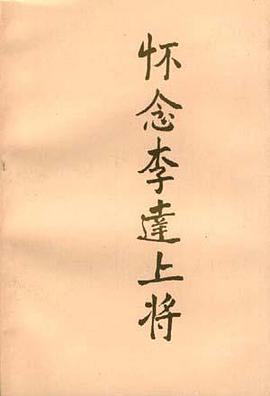 怀念李達上将